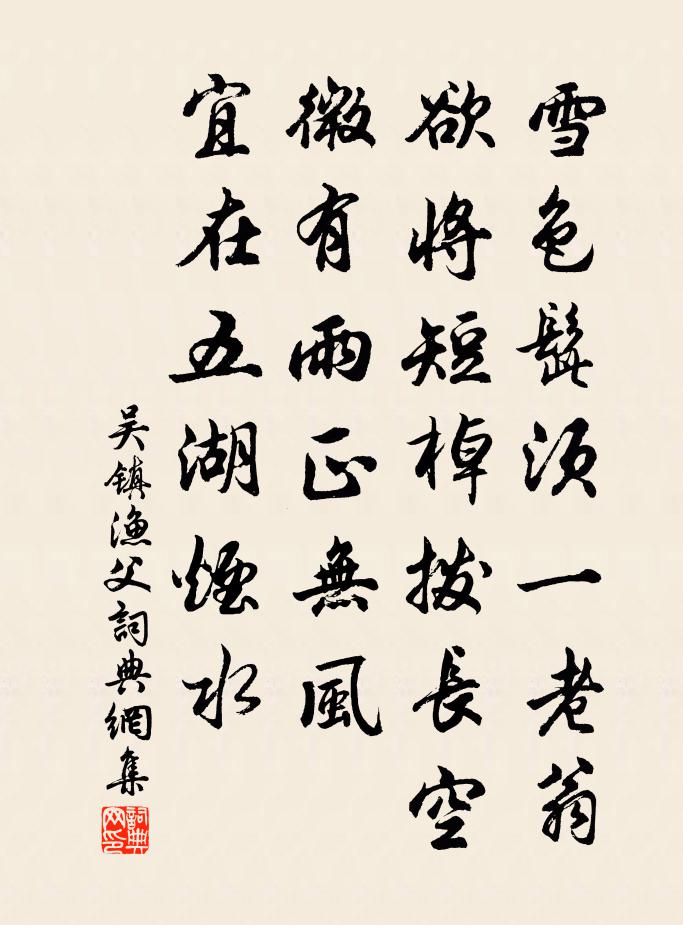 雪色髭須一老翁
欲將短棹撥長空
微有雨正無風
宜在五湖煙水
吴鎮漁父詞典網集
詞典網印